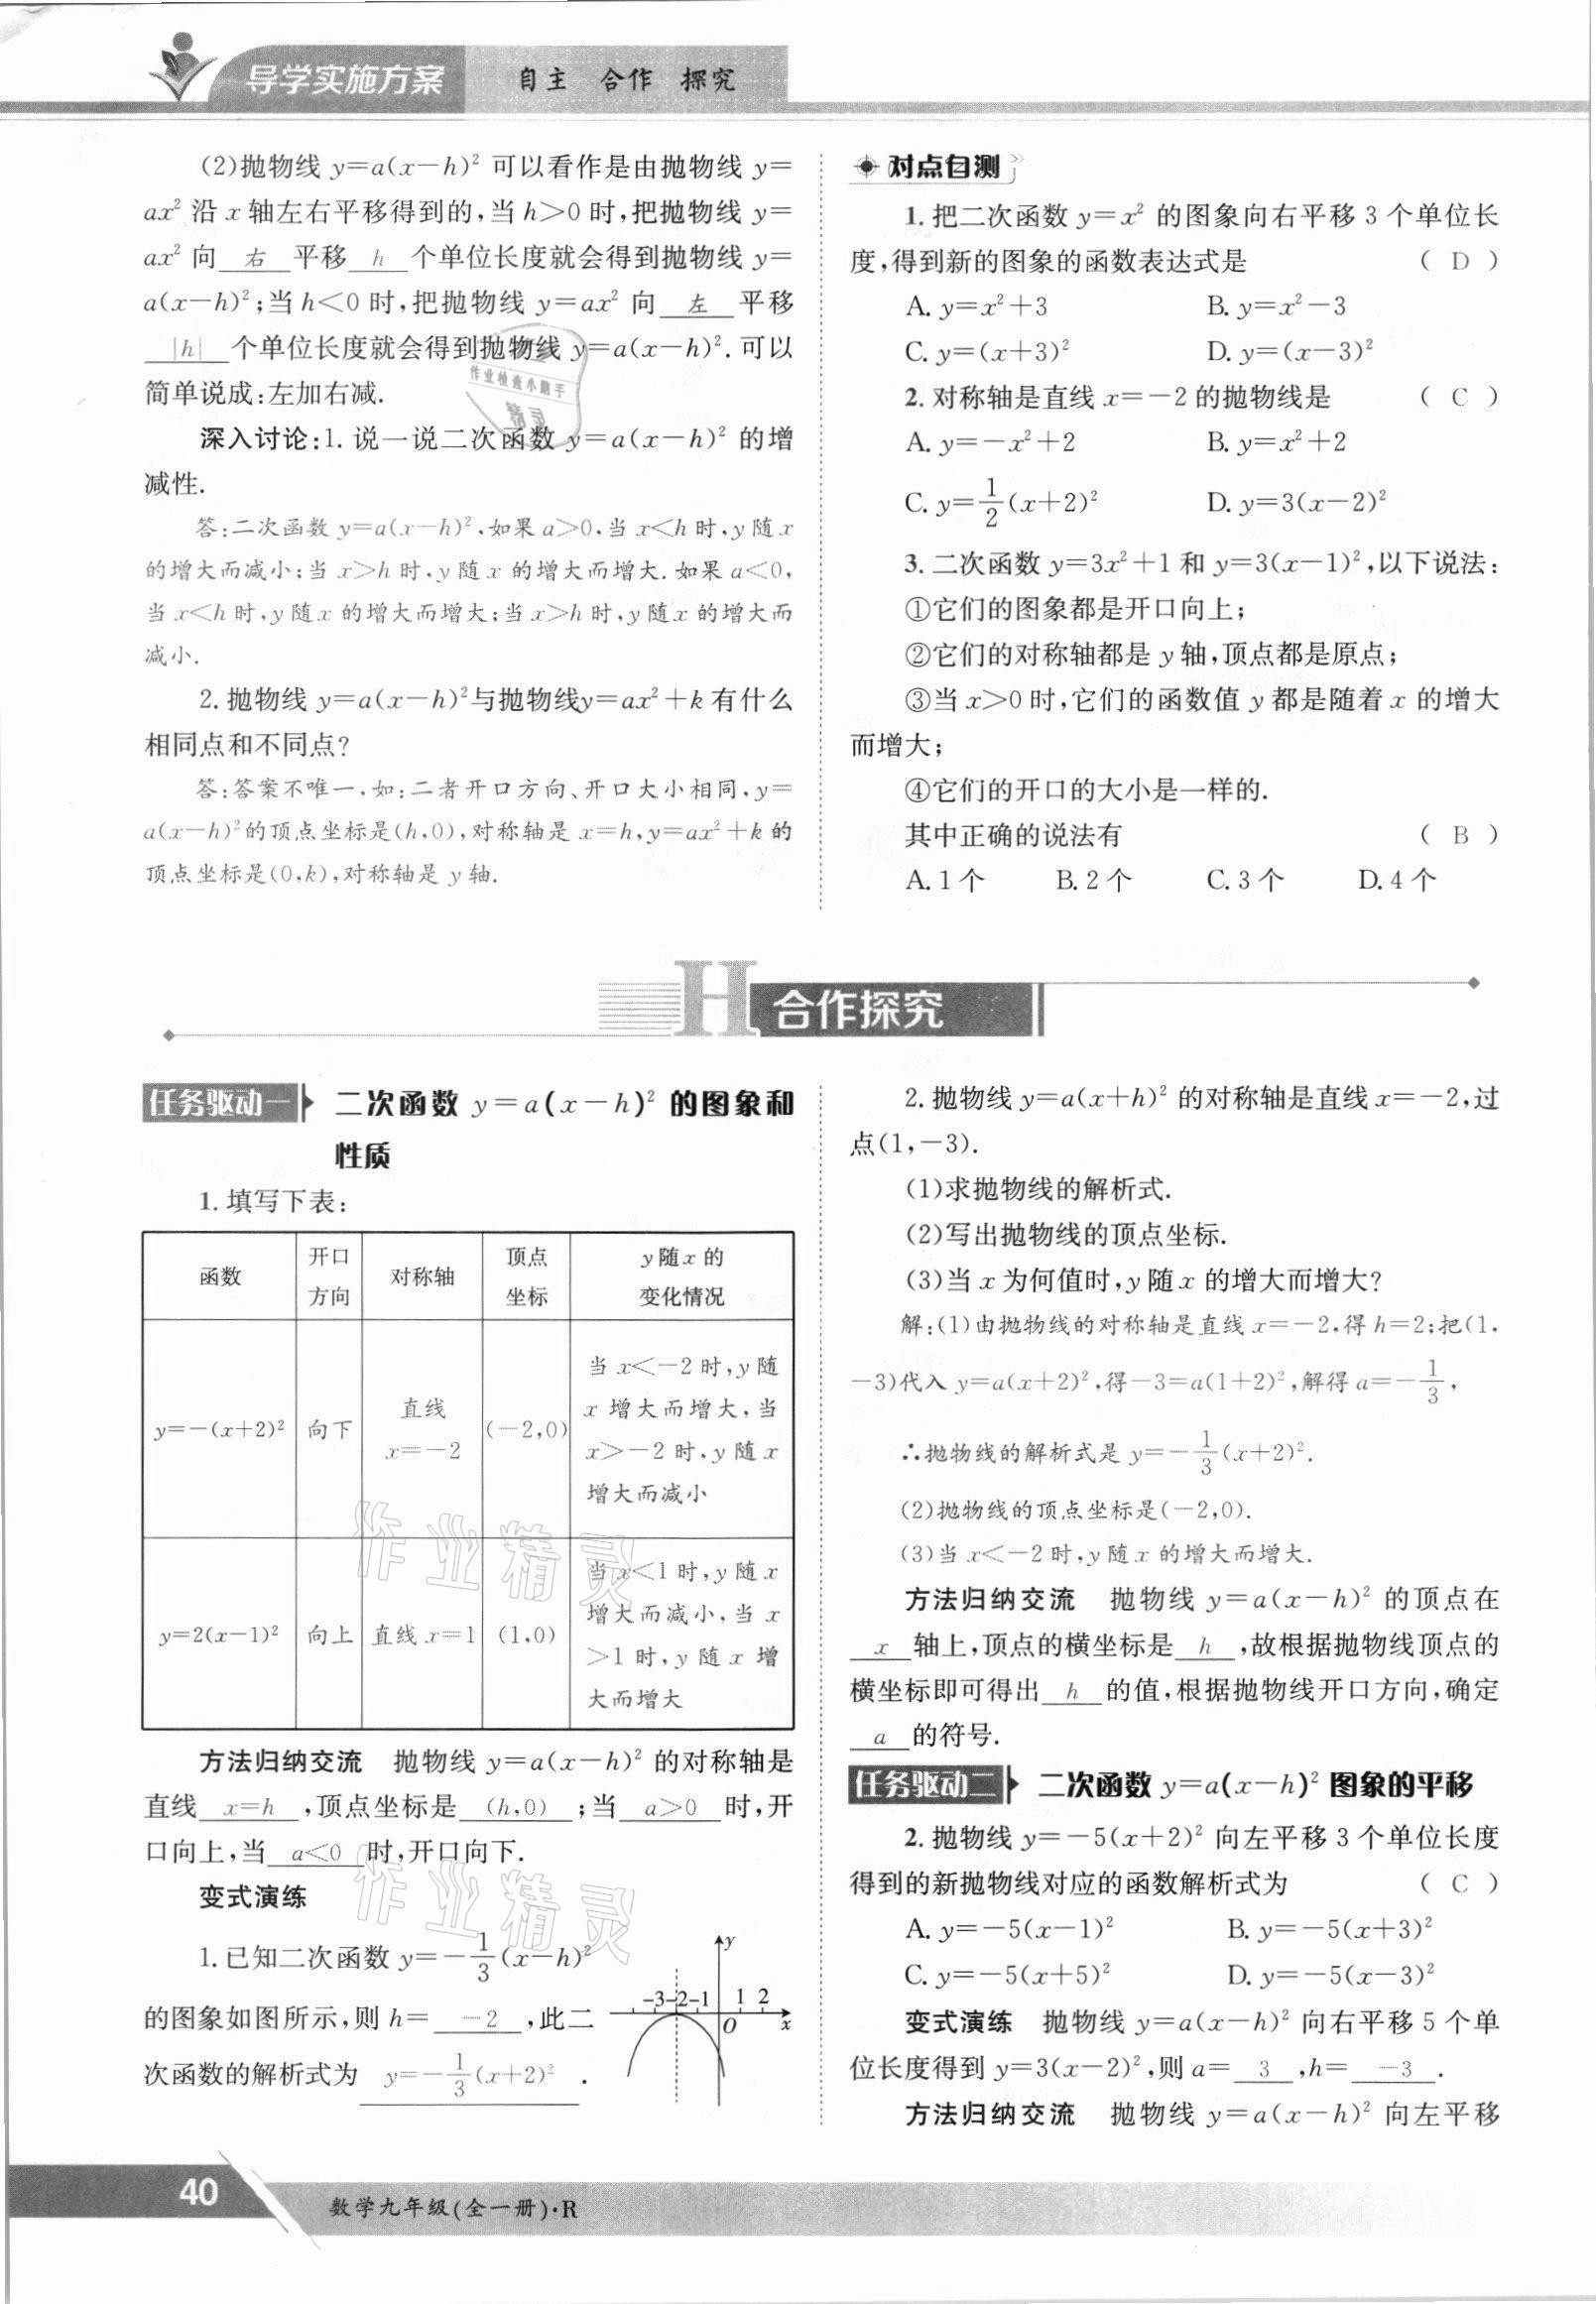 导学实施方案 自主 合作 探究
(2)抛物线 y=a(x-h)² 可以看作是由抛物线 y=
ax² 沿 x 轴左右平移得到的,当 h>0 时,把抛物线 y=
ax² 向 右 平移 h 个单位长度就会得到抛物线 y=
a(x-h)²;当 h<0 时,把抛物线 y=ax² 向 左 平移
|h| 个单位长度就会得到抛物线 y=a(x-h)².可以
简单说成:左加右减.
深入讨论:1. 说一说二次函数 y=a(x-h)² 的增
减性.
答:二次函数 y=a(x-h)²,如果 a>0,当 x<h 时,y 随 x
的增大而减小;当 x>h 时,y 随 x 的增大而增大.如果 a<0,
当 x<h 时,y 随 x 的增大而增大;当 x>h 时,y 随 x 的增大而
减小.
2. 抛物线 y=a(x-h)²与抛物线y=ax²+k 有什么
相同点和不同点?
答:答案不唯一,如:二者开口方向、开口大小相同,y=
a(x-h)²的顶点坐标是(h,0),对称轴是 x=h,y=ax²+k 的
顶点坐标是(0,k),对称轴是 y 轴.
对点自测
1. 把二次函数 y=x² 的图象向右平移 3 个单位长
度,得到新的图象的函数表达式是 ( D )
A. y=x²+3 B. y=x²-3
C. y=(x+3)² D. y=(x-3)²
2. 对称轴是直线 x=-2 的抛物线是 ( C )
A. y=-x²+2 B. y=x²+2
C. y=1/2(x+2)² D. y=3(x-2)²
3. 二次函数 y=3x²+1 和 y=3(x-1)²,以下说法:
①它们的图象都是开口向上;
②它们的对称轴都是 y 轴,顶点都是原点;
③当 x>0 时,它们的函数值 y 都是随着 x 的增大
而增大;
④它们的开口的大小是一样的.
其中正确的说法有 ( B )
A. 1 个 B. 2 个 C. 3 个 D. 4 个
H 合作探究
任务驱动一 二次函数 y=a(x-h)² 的图象和
性质
1. 填写下表:
函数 开口方向 对称轴 顶点坐标 y 随 x 的变化情况
y=-(x+2)² 向下 直线 x=-2 (-2,0) 当 x<-2 时,y 随 x 增大而增大,当 x>-2 时,y 随 x 增大而减小
y=2(x-1)² 向上 直线 x=1 (1,0) 当 x<1 时,y 随 x 增大而减小,当 x>1 时,y 随 x 增大而增大
方法归纳交流 抛物线 y=a(x-h)² 的对称轴是
直线 x=h ,顶点坐标是 (h,0) ;当 a>0 时,开
口向上,当 a<0 时,开口向下.
变式演练
1. 已知二次函数 y=-1/3(x-h)²
的图象如图所示,则 h= -2 ,此二
次函数的解析式为 y=-1/3(x+2)² .
y
-3 -2 -1 1 2
O x
2. 抛物线 y=a(x+h)² 的对称轴是直线 x=-2,过
点(1,-3).
(1)求抛物线的解析式.
(2)写出抛物线的顶点坐标.
(3)当 x 为何值时,y 随 x 的增大而增大?
解:(1)由抛物线的对称轴是直线 x=-2,得 h=2;把(1,
-3)代入 y=a(x+2)²,得-3=a(1+2)²,解得 a=-1/3,
∴抛物线的解析式是 y=-1/3(x+2)².
(2)抛物线的顶点坐标是(-2,0).
(3)当 x<-2 时,y 随 x 的增大而增大.
方法归纳交流 抛物线 y=a(x-h)² 的顶点在
x 轴上,顶点的横坐标是 h ,故根据抛物线顶点的
横坐标即可得出 h 的值,根据抛物线开口方向,确定
a 的符号.
任务驱动二 二次函数 y=a(x-h)² 图象的平移
2. 抛物线 y=-5(x+2)² 向左平移 3 个单位长度
得到的新抛物线对应的函数解析式为 ( C )
A. y=-5(x-1)² B. y=-5(x+3)²
C. y=-5(x+5)² D. y=-5(x-3)²
变式演练 抛物线 y=a(x-h)² 向右平移 5 个单
位长度得到 y=3(x-2)²,则 a= 3 ,h= -3 .
方法归纳交流 抛物线 y=a(x-h)² 向左平移
40
数学九年级(全一册)·R
作业检查小助手
精灵
作业精灵
作业精灵